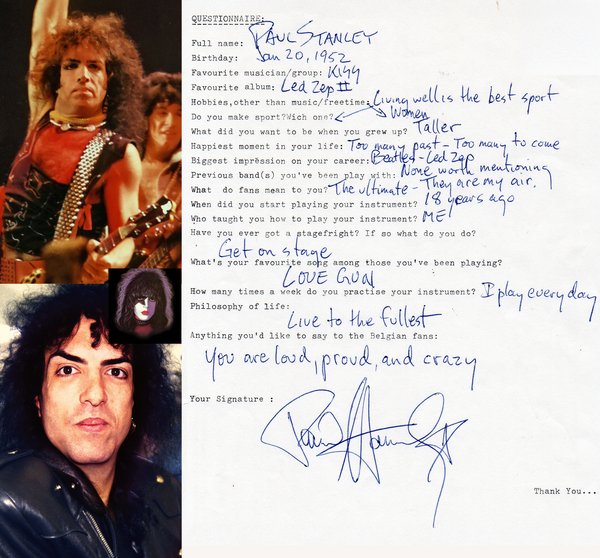 QUESTIONNAIRE:
Full name: PAUL STANLEY
Birthday: Jan 20, 1952
Favourite musician/group: KISS
Favourite album: Led Zep II
Hobbies,other than music/freetime: Living well is the best sport
Do you make sport?Wich one? Women
What did you want to be when you grew up? Taller
Happiest moment in your life: Too many past - Too many to come
Biggest impression on your career: Beatles - Led Zep
Previous band(s) you've been play with: None worth mentioning
What do fans mean to you? The ultimate - They are my air.
When did you start playing your instrument? 18 years ago
Who taught you how to play your instrument? ME!
Have you ever got a stagefright? If so what do you do?
Get on stage
What's your favourite song among those you've been playing?
LOVE GUN
How many times a week do you practise your instrument? I play every day
Philosophy of life:
Live to the fullest
Anything you'd like to say to the Belgian fans:
You are loud, proud, and crazy
Your Signature :
Paul Stanley
Thank You...